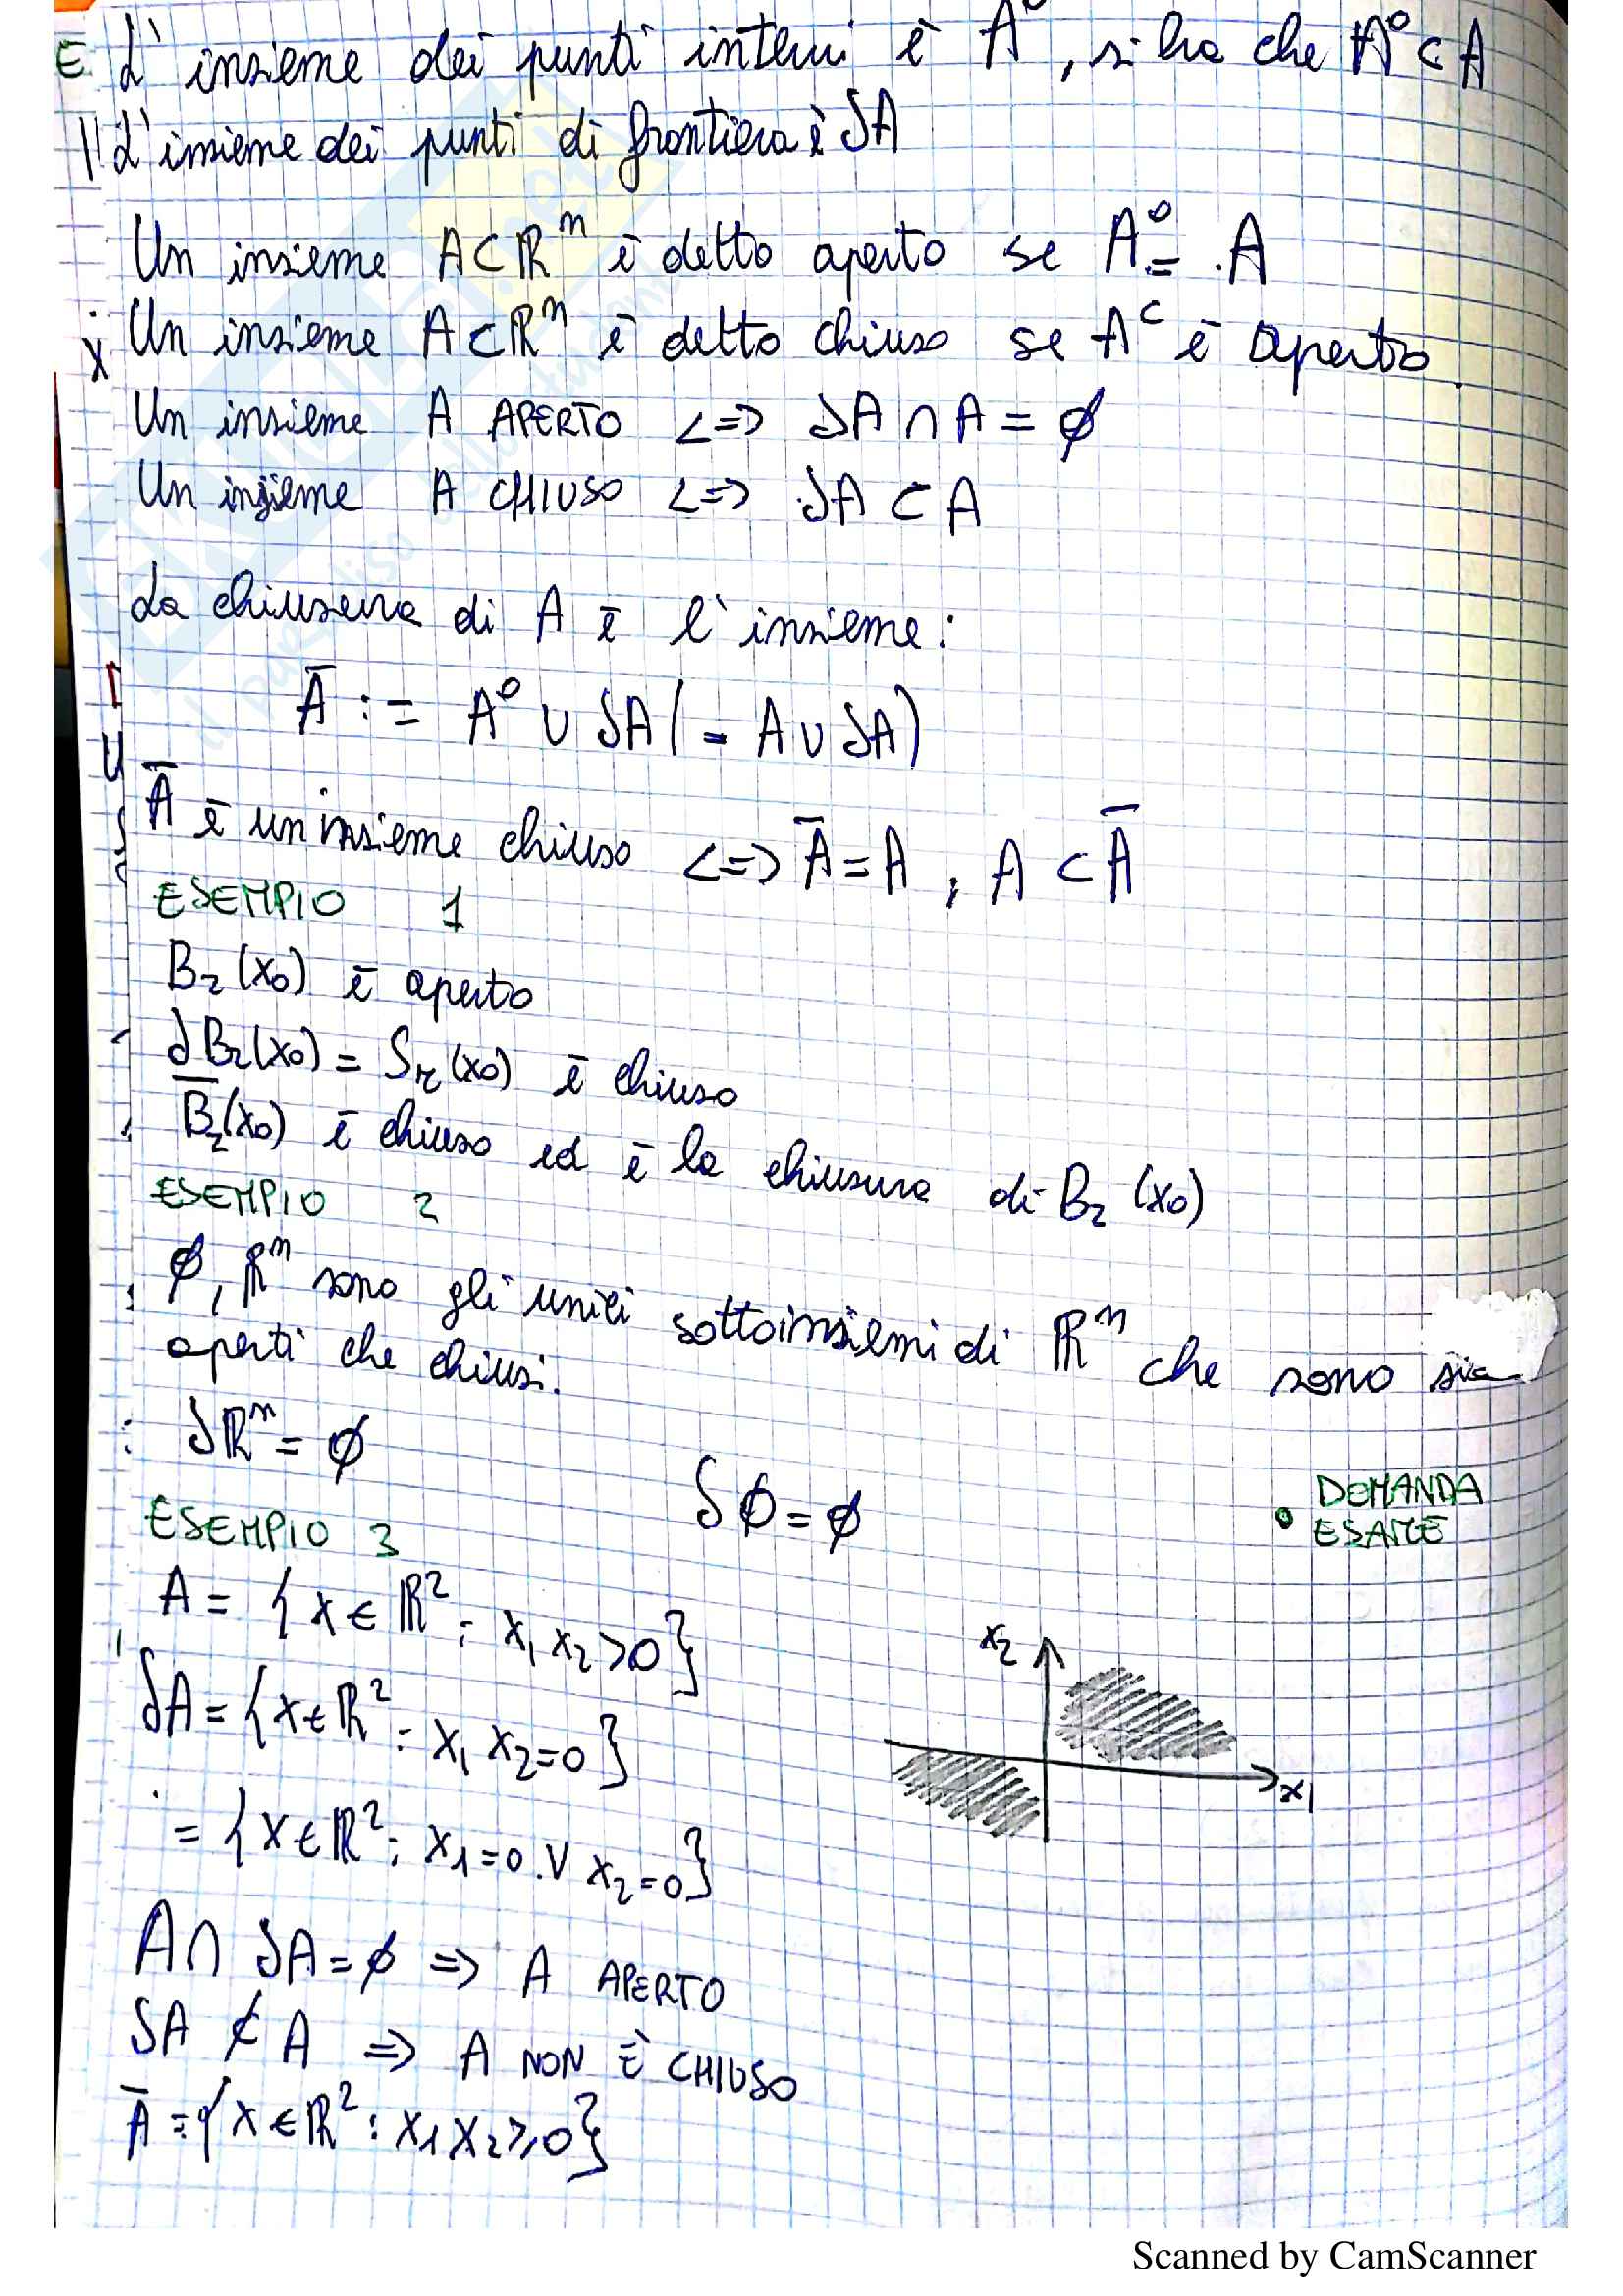 L'insieme dei punti interni è A°, si ha che A° ⊂ A
L'insieme dei punti di frontiera è ∂A
Un insieme A⊂ℝⁿ è detto aperto se A° = A
Un insieme A⊂ℝⁿ è detto chiuso se Aᶜ è aperto.
Un insieme A APERTO <=> ∂A ∩ A = ∅
Un insieme A CHIUSO <=> ∂A ⊂ A
La chiusura di A è l'insieme:
Ā := A° ∪ ∂A (= A ∪ ∂A)
Ā è un insieme chiuso <=> Ā = A , A ⊂ Ā
ESEMPIO 1
B_r(x₀) è aperto
∂B_r(x₀) = S_r(x₀) è chiuso
B̄_r(x₀) è chiuso ed è la chiusura di B_r(x₀)
ESEMPIO 2
∅, ℝⁿ sono gli unici sottoinsiemi di ℝⁿ che sono sia
aperti che chiusi.
∂ℝⁿ = ∅ ∂∅ = ∅
• DOMANDA
ESAME
ESEMPIO 3
A = {x ∈ ℝ² : x₁x₂>0}
∂A = {x ∈ ℝ² : x₁x₂=0}
= {x ∈ ℝ² : x₁=0 ∨ x₂=0}
x₂
x₁
A ∩ ∂A = ∅ => A APERTO
∂A ⊄ A => A NON È CHIUSO
Ā = {x ∈ ℝ² : x₁x₂⩾0}
Scanned by CamScanner